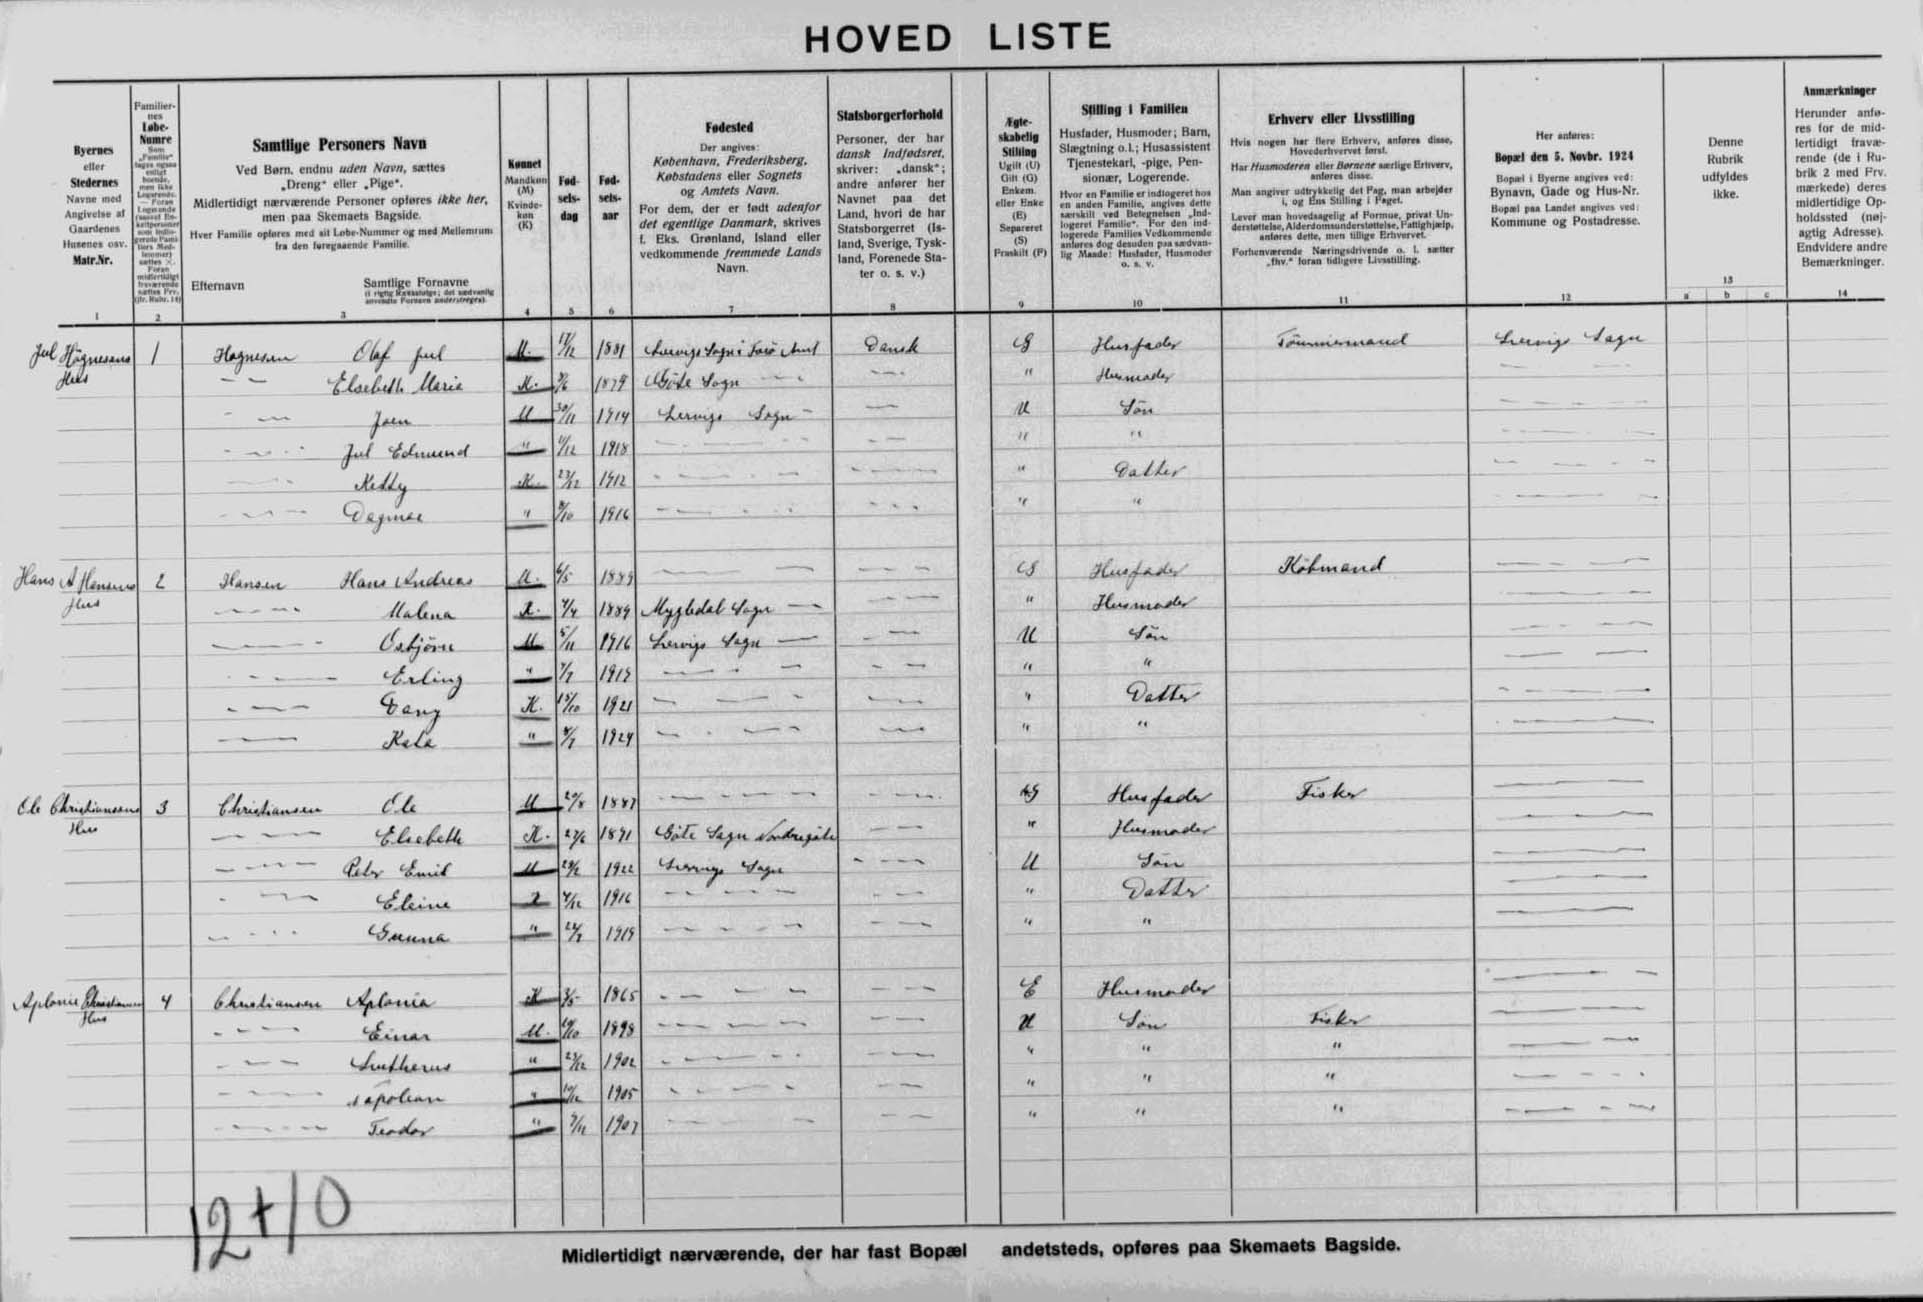 HOVED LISTE
Byernes eller Stedernes Navne med Angivelse af Gaardenes Husenes osv. Matr.Nr.
Familiernes Løbe-Numre
Samtlige Personers Navn
Ved Børn, endnu uden Navn, sættes
„Dreng“ eller „Pige“.
Midlertidigt nærværende Personer opføres ikke her,
men paa Skemaets Bagside.
Hver Familie opføres med sit Løbe-Nummer og med Mellemrum
fra den foregaaende Familie.
Efternavn Samtlige Fornavne
(i rigtig Rækkefølge; det sædvanlig
anvendte Fornavn understreges).
Kønnet Mandkøn (M) Kvindekøn (K)
Fødselsdag
Fødselsaar
Fødested
Der angives:
København, Frederiksberg,
Købstadens eller Sognets
og Amtets Navn.
For dem, der er født udenfor
det egentlige Danmark, skrives
f. Eks. Grønland, Island eller
vedkommende fremmede Lands
Navn.
Statsborgerforhold
Personer, der har
dansk Indfødsret,
skriver: „dansk“;
andre anfører her
Navnet paa det
Land, hvori de har
Statsborgerret (Island, Sverige, Tyskland, Forenede Stater o. s. v.)
Ægteskabelig Stilling
Ugift (U)
Gift (G)
Enkem. eller Enke (E)
Separeret (S)
Fraskilt (F)
Stilling i Familien
Husfader, Husmoder; Barn,
Slægtning o.l.; Husassistent
Tjenestekarl, -pige, Pensionær, Logerende.
Hvor en Familie er indlogeret hos
en anden Familie, angives dette
særskilt ved Betegnelsen „Indlogeret Familie“. For den indlogerede Families Vedkommende
anføres dog desuden paa sædvanlig Maade: Husfader, Husmoder
o. s. v.
Erhverv eller Livsstilling
Hvis nogen har flere Erhverv, anføres disse,
Hovederhvervet først.
Har Husmoderen eller Børnene særlige Erhverv,
anføres disse.
Man angiver udtrykkelig det Fag, man arbejder
i, og Ens Stilling i Faget.
Lever man hovedsagelig af Formue, privat Understøttelse, Alderdomsunderstøttelse, Fattighjælp,
anføres dette, men tillige Erhvervet.
Forhenværende Næringsdrivende o. l. sætter
„fhv.“ foran tidligere Livsstilling.
Her anføres:
Bopæl den 5. Novbr. 1924
Bopæl i Byerne angives ved:
Bynavn, Gade og Hus-Nr.
Bopæl paa Landet angives ved:
Kommune og Postadresse.
Denne
Rubrik
udfyldes
ikke.
Anmærkninger
Herunder anføres for de midlertidigt fraværende (de i Rubrik 2 med Frv.
mærkede) deres
midlertidige Opholdssted (nøjagtig Adresse).
Endvidere andre
Bemærkninger.
1 2 3 4 5 6 7 8 9 10 11 12 13 14
a b c
Jul Høgnesens Hus 1 Høgnesen Olaf Jul M. 17/12 1881 Lervigs Sogn i Færø Amt Dansk G Husfader Tømmermand Lervigs Sogn
Elsebeth Maria K. 1879 Gøte Sogn " Husmoder
Joen M 30/11 1914 Lervigs Sogn U Søn
Jul Edmund " 1/12 1918 " "
Ketty K. 27/12 1912 " Datter
Dagmar " 8/10 1916 " "
Hans A Hansens Hus 2 Hansen Hans Andreas M. 6/5 1889 G Husfader Købmand
Malena K. 1889 Mygledal Sogn " Husmoder
Osbjørn M 5/11 1916 Lervigs Sogn U Søn
Erling " 1919 " "
Dany K. 15/10 1921 " Datter
Kala " 1924 " "
Ole Christiansens Hus 3 Christiansen Ole M 20/8 1887 G Husfader Fisker
Elsebeth K. 27/6 1891 Gøte Sogn Nordregøte " Husmoder
Peter Emil M 1922 Lervigs Sogn U Søn
Eleine 1916 " Datter
Gunna " 1919 " "
Aplonie Christiansens Hus 4 Christiansen Aplonia K 3/5 1865 E Husmoder
Einar M. 1898 U Søn Fisker
Lutherus " 27/12 1902 " " "
Napolian " 10/12 1905 " " "
Teodor " 1907 " " "
12+10
Midlertidigt nærværende, der har fast Bopæl andetsteds, opføres paa Skemaets Bagside.